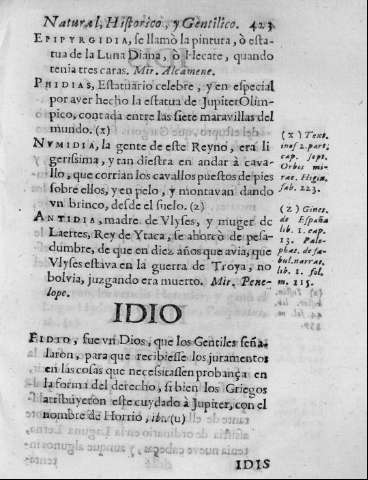 Natural, Historico, y Gentilico. 423
EPIPYRGIDIA, se llamò la pintura, ò esta-
tua de la Luna Diana, ò Hecate, quando
tenia tres caras. Mir. Alcamene.
PHIDIAS, Estatuario celebre, y en especial
por aver hecho la estatua de Jupiter Olin-
pico, contada entre las siete maravillas del
mundo. (1)
NVMIDIA, la gente de este Reyno, era li
gerissima, y tan diestra en andar à cava-
llo, que corrian los cavallos puestos de pies
sobre ellos, y en pelo, y montavan dando
vn brinco, desde el suelo. (2)
ANTIDIA, madre de Vlyses, y muger de
Laertes, Rey de Ytaca, se ahorcò de pesa-
dumbre, de que en diez años que avia, que
Vlyses estava en la guerra de Troya, no
bolvia, juzgando era muerto. Mir. Pene-
lope.
(1) Text.
inof 2. part.
cap. sept.
Orbis mi-
rae. Higin.
fab. 223.
(2) Gines.
de España
lib. 1. cap.
13. Pale-
phat. de fa-
bul. narrat.
lib. 1. fol.
m. 215.
IDIO
FIDIO, fue vn Dios, que los Gentiles seña-
laron, para que recibiesse los juramentos
en las cosas que necessitassen probança en
la forma del derecho, si bien los Griegos
atribuyeron este cuydado à Jupiter, con el
nombre de Horrio, ibi (u)
IDIS